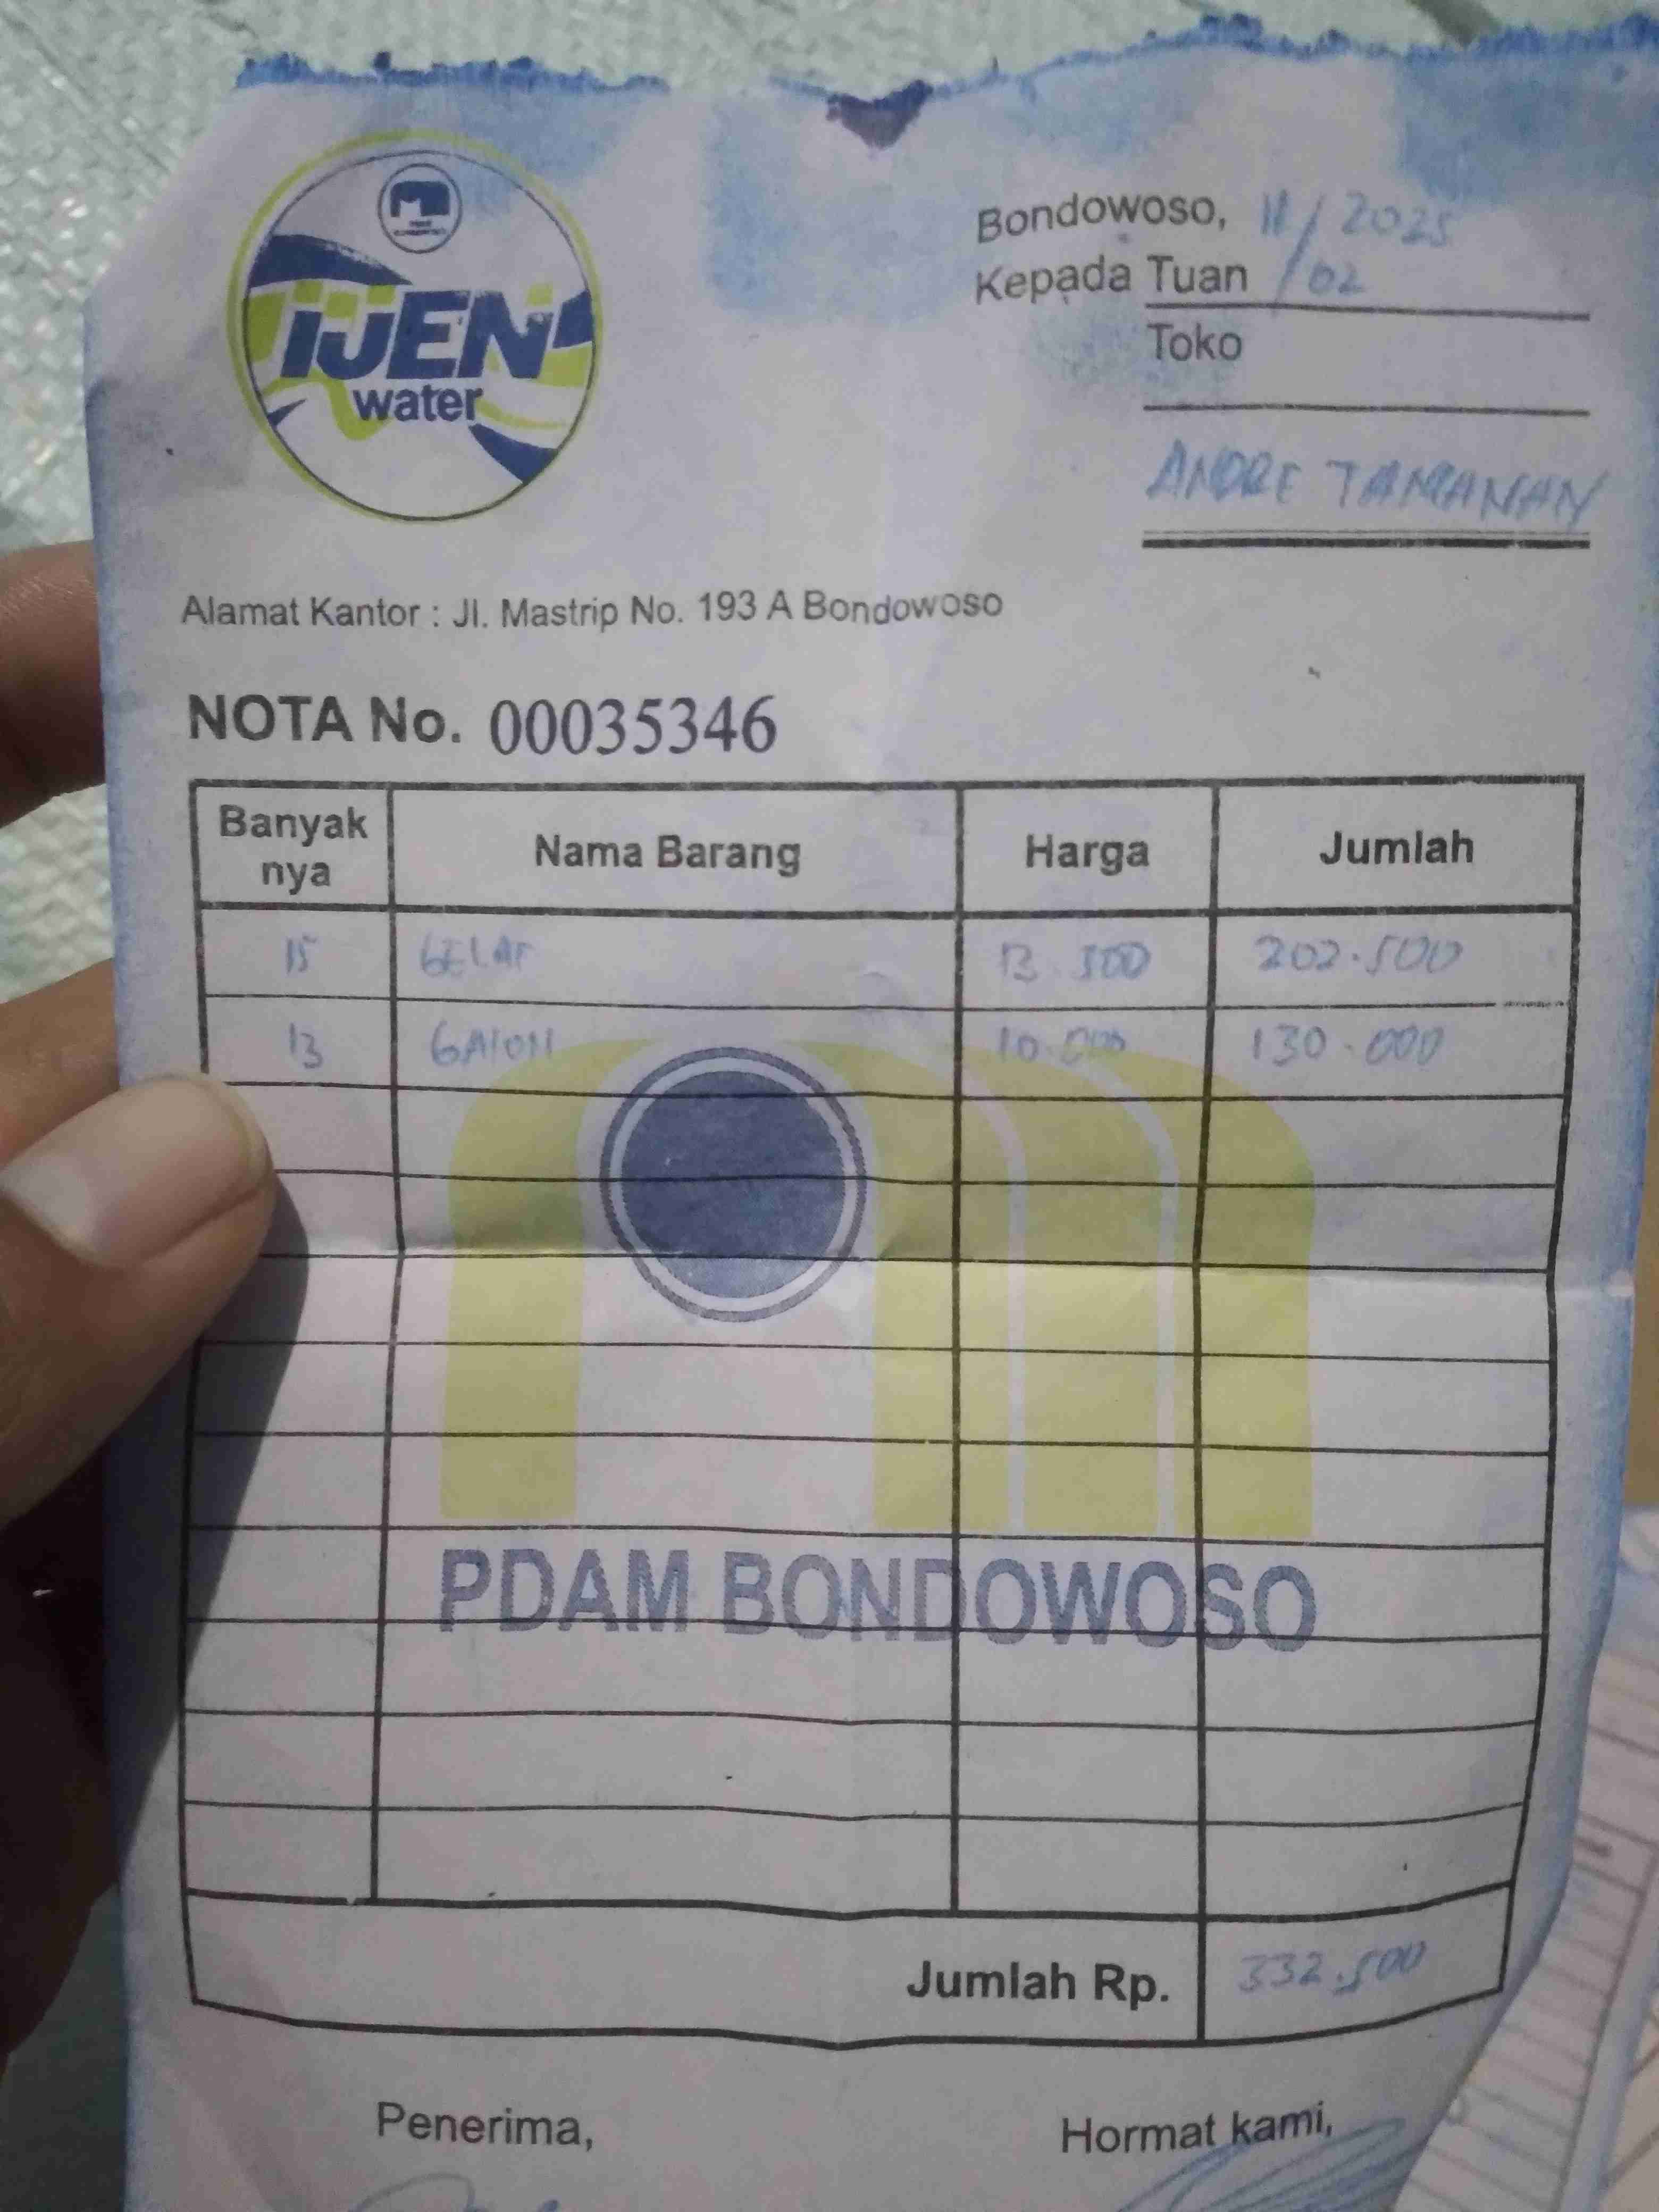 IJEN
water
Bondowoso, 11/02 2025
Kepada Tuan
Toko
ANDRE TAMANAN
Alamat Kantor : Jl. Mastrip No. 193 A Bondowoso
NOTA No. 00035346
Banyak nya Nama Barang Harga Jumlah
15 GELAS 13.500 202.500
13 GALON 10.000 130.000
PDAM BONDOWOSO
Jumlah Rp. 332.500
Penerima, Hormat kami,